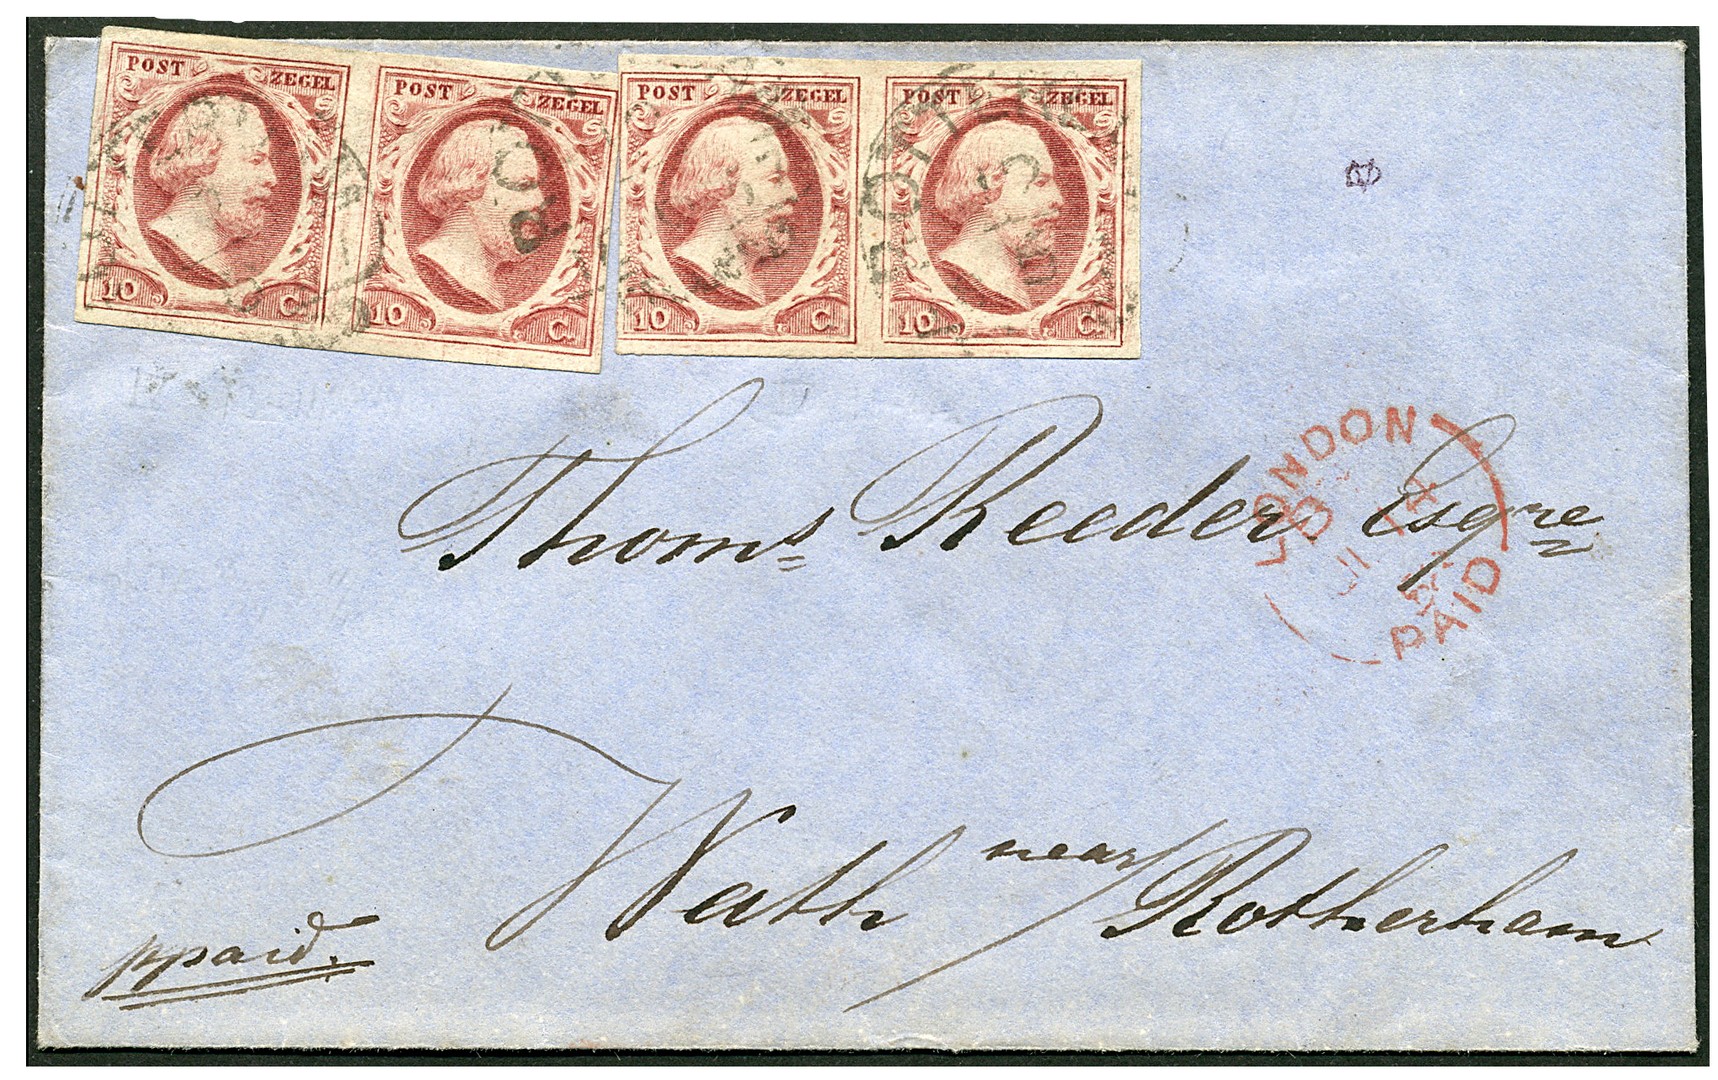 POST ZEGEL POST ZEGEL POST ZEGEL POST ZEGEL
10 C. 10 C. 10 C. 10 C.
LONDON
PAID
Thoms Reeder Esqre
Wath near Rotherham
ppaid.